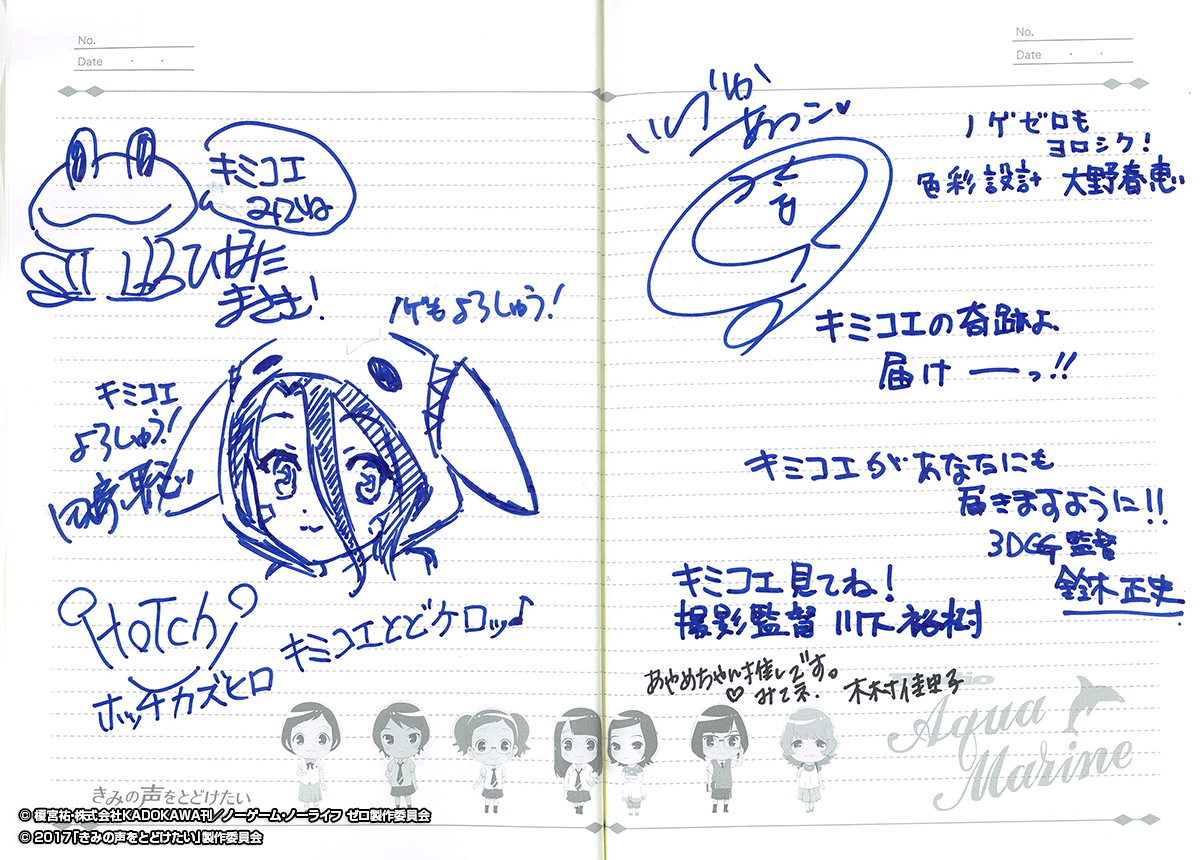 No.
Date ・ ・
キミコエ
みてね
ひばた
まさき!
ノゲもよろしゅう!
キミコエ
よろしゅう!
田﨑 聡
HoTch
ホッチカズヒロ
キミコエとどケロッ♪
きみの声をとどけたい
No.
Date ・ ・
いしづか
あつこ♥
ノゲゼロも
ヨロシク!
色彩設計 大野春恵
キミコエの奇跡よ
届けーっ!!
キミコエがあなたにも
届きますように!!
3DCG監督
鈴木正史
キミコエ見てね!
撮影監督 川下裕樹
あやめちゃん推しです。
♡ みてネ.
木村佳史子
Radio
Aqua
Marine
© 榎宮祐・株式会社KADOKAWA刊/ノーゲーム・ノーライフ ゼロ製作委員会
© 2017「きみの声をとどけたい」製作委員会